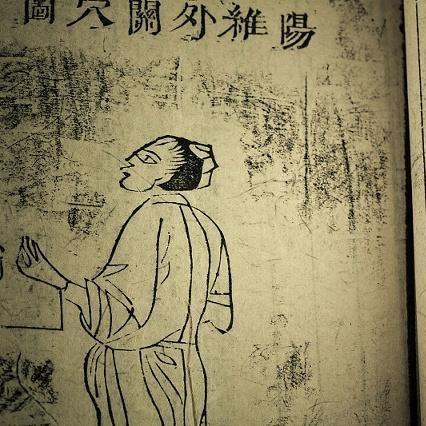 陽維外關穴圖